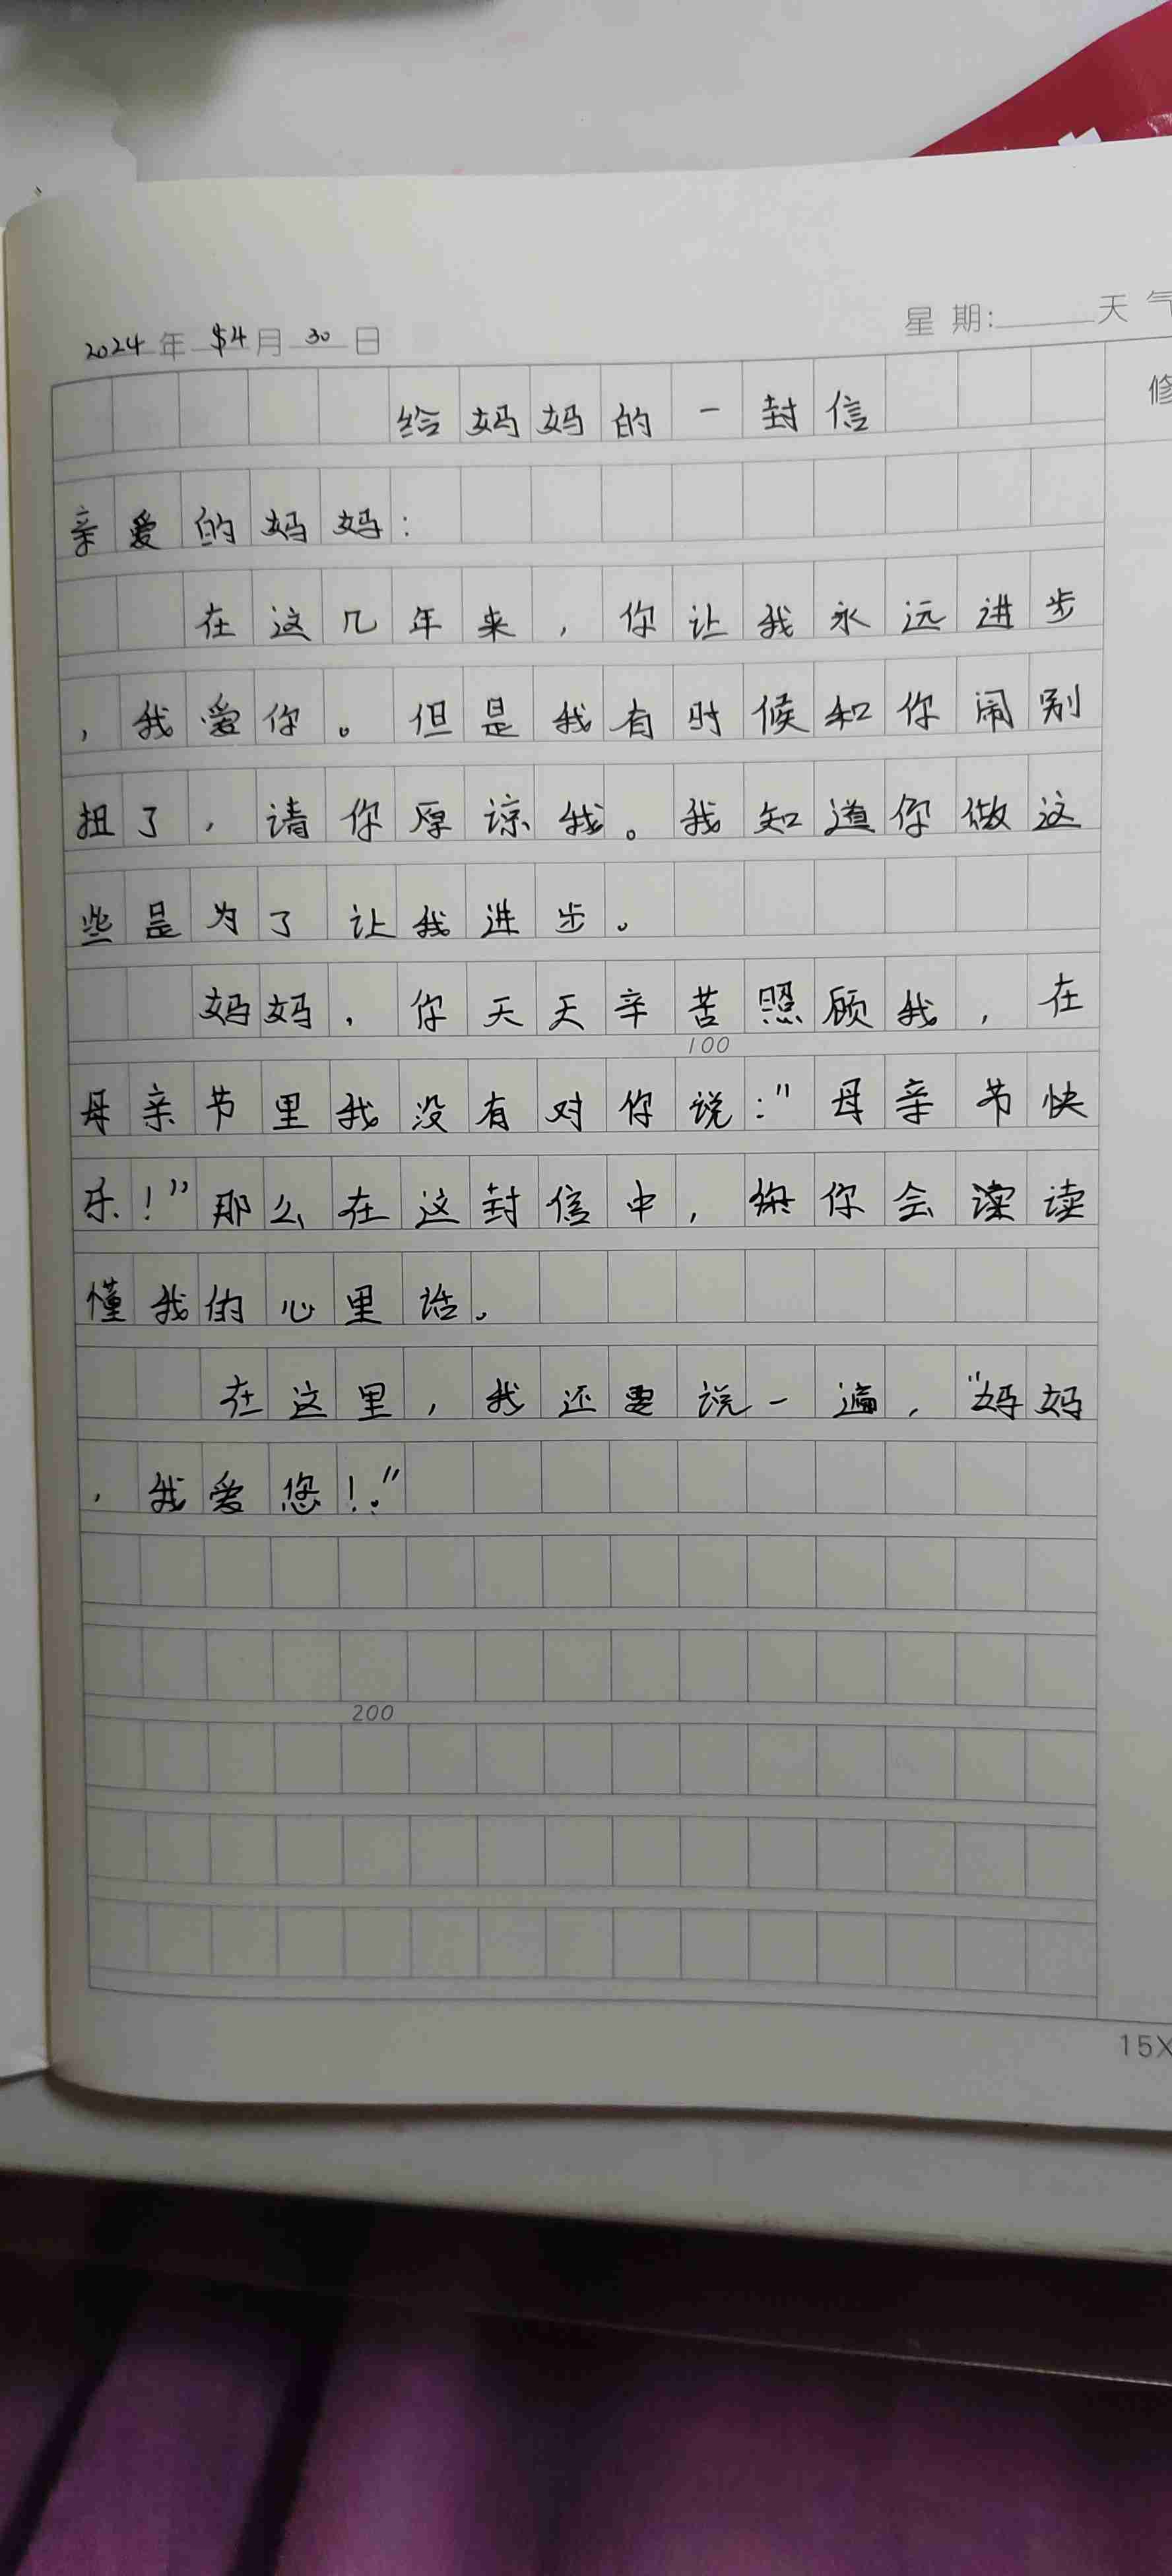 2024年 4月 30日
星期: 天气
修
给妈妈的一封信
亲爱的妈妈:
在这几年来，你让我永远进步
，我爱你。但是我有时候和你闹别
扭了，请你厚谅我。我知道你做这
些是为了让我进步。
妈妈，你天天辛苦照顾我，在
100
母亲节里我没有对你说:"母亲节快
乐!"那么在这封信中，你会读
懂我的心里话。
在这里，我还要说一遍，"妈妈
，我爱您!。"
200
15X